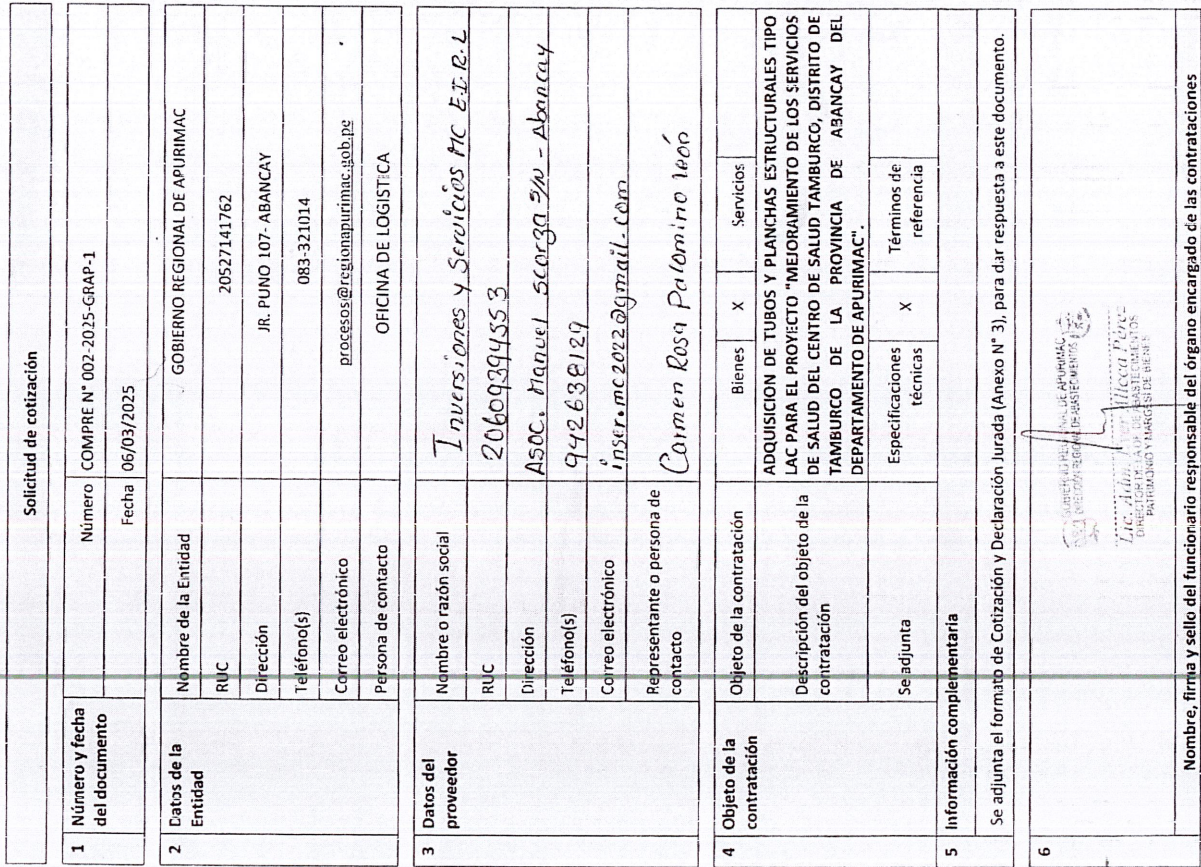 Solicitud de cotización
1 Número y fecha del documento Número COMPRE N° 002-2025-GRAP-1
Fecha 06/03/2025
2 Datos de la Entidad
Nombre de la Entidad GOBIERNO REGIONAL DE APURIMAC
RUC 20527141762
Dirección JR. PUNO 107- ABANCAY
Teléfono(s) 083-321014
Correo electrónico procesos@regionapurimac.gob.pe
Persona de contacto OFICINA DE LOGISTICA
3 Datos del proveedor
Nombre o razón social Inversiones y Servicios MC E.I.R.L
RUC 20609394553
Dirección Asoc. Manuel Scorza S/N - Abancay
Teléfono(s) 942638124
Correo electrónico inser.mc2022@gmail.com
Representante o persona de contacto Carmen Rosa Palomino león
4 Objeto de la contratación
Objeto de la contratación Bienes X Servicios
Descripción del objeto de la contratación
ADQUISICION DE TUBOS Y PLANCHAS ESTRUCTURALES TIPO
LAC PARA EL PROYECTO "MEJORAMIENTO DE LOS SERVICIOS
DE SALUD DEL CENTRO DE SALUD TAMBURCO, DISTRITO DE
TAMBURCO DE LA PROVINCIA DE ABANCAY DEL
DEPARTAMENTO DE APURIMAC".
Se adjunta Especificaciones técnicas X Términos de referencia
5 Información complementaria
Se adjunta el formato de Cotización y Declaración Jurada (Anexo N° 3), para dar respuesta a este documento.
6
GOBIERNO REGIONAL DE APURIMAC
DIRECCIÓN REGIONAL DE ABASTECIMIENTOS
Lic. Adm.
PATRIMONIO Y MARGESI DE BIENES
Nombre, firma y sello del funcionario responsable del órgano encargado de las contrataciones